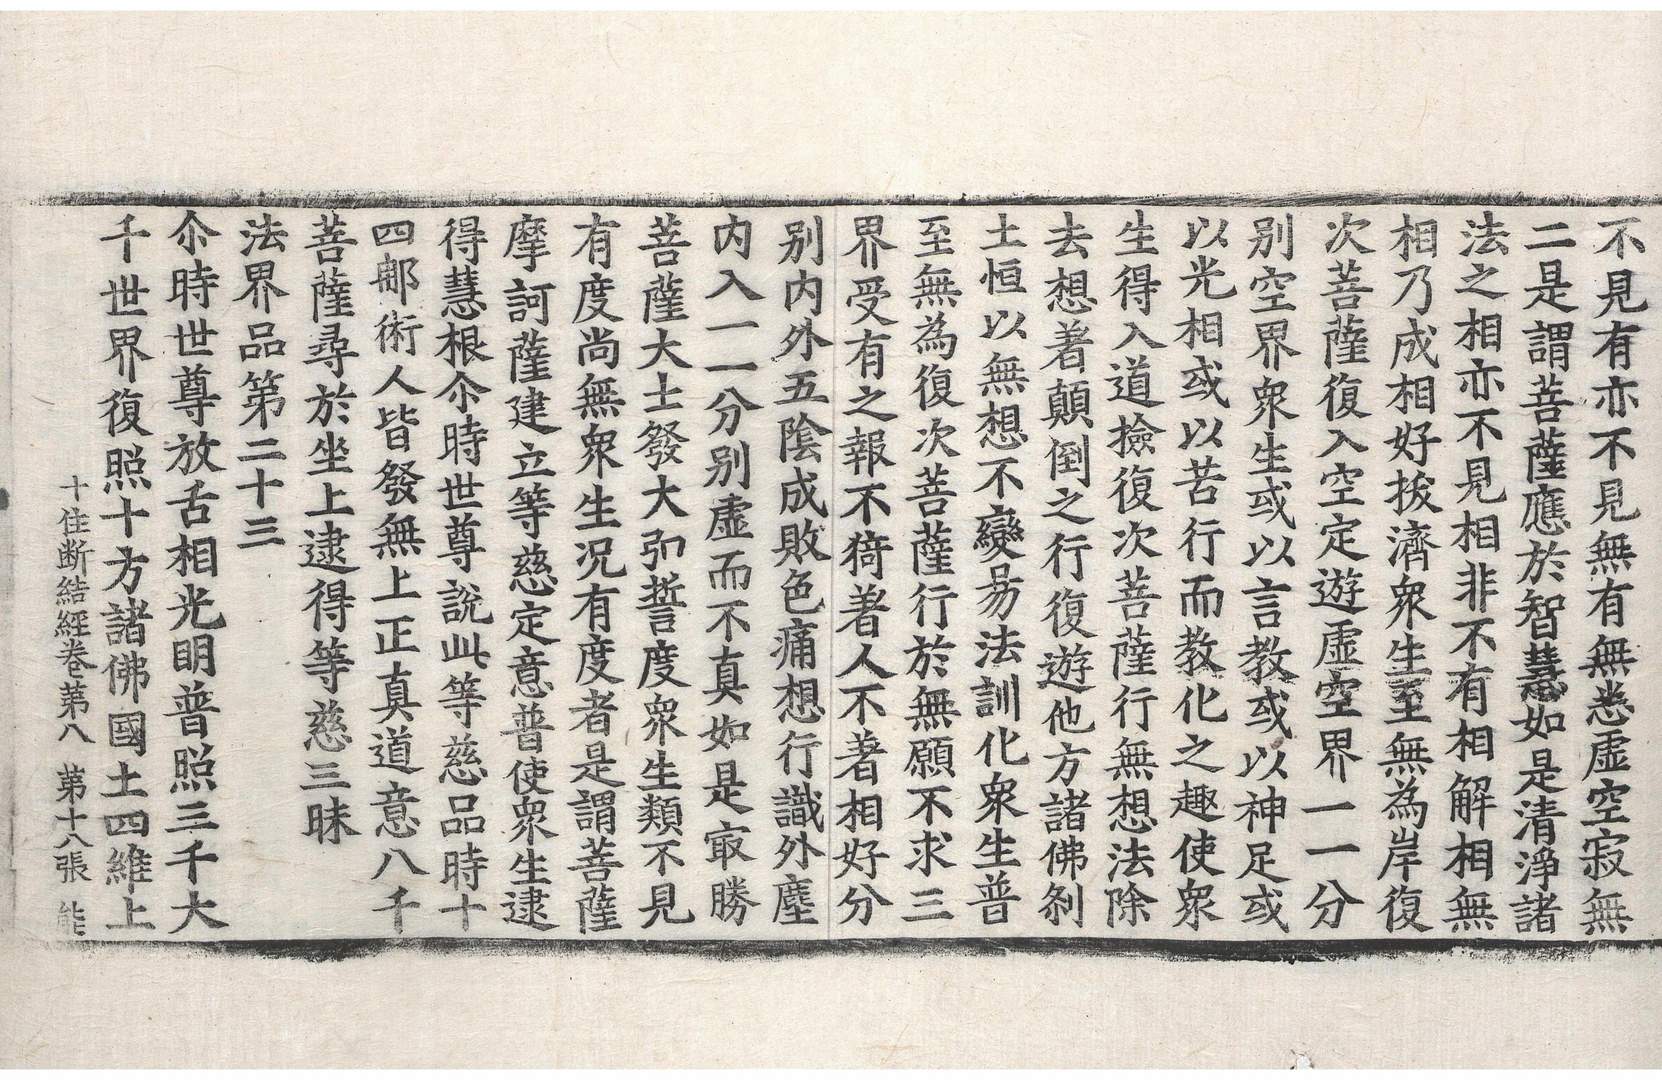 不見有亦不見無有無悉虛空寂無
二是謂菩薩應於智慧如是清淨諸
法之相亦不見相非不有相解相無
相乃成相好拔濟衆生至無為岸復
次菩薩復入空定遊虛空界一一分
別空界衆生或以言教或以神足或
以光相或以苦行而教化之趣使衆
生得入道撿復次菩薩行無想法除
去想著顛倒之行復遊他方諸佛剎
土恒以無想不變易法訓化衆生普
至無為復次菩薩行於無願不求三
界受有之報不猗著人不著相好分
別內外五陰成敗色痛想行識外塵
內入一一分別虛而不真如是冣勝
菩薩大士發大弘誓度衆生類不見
有度尚無衆生況有度者是謂菩薩
摩訶薩建立等慈定意普使衆生逮
得慧根尒時世尊說此等慈品時十
四那術人皆發無上正真道意八千
菩薩尋於坐上逮得等慈三昧
法界品第二十三
尒時世尊放舌相光明普照三千大
千世界復照十方諸佛國土四維上
十住斷結經卷第八 第十八張 能